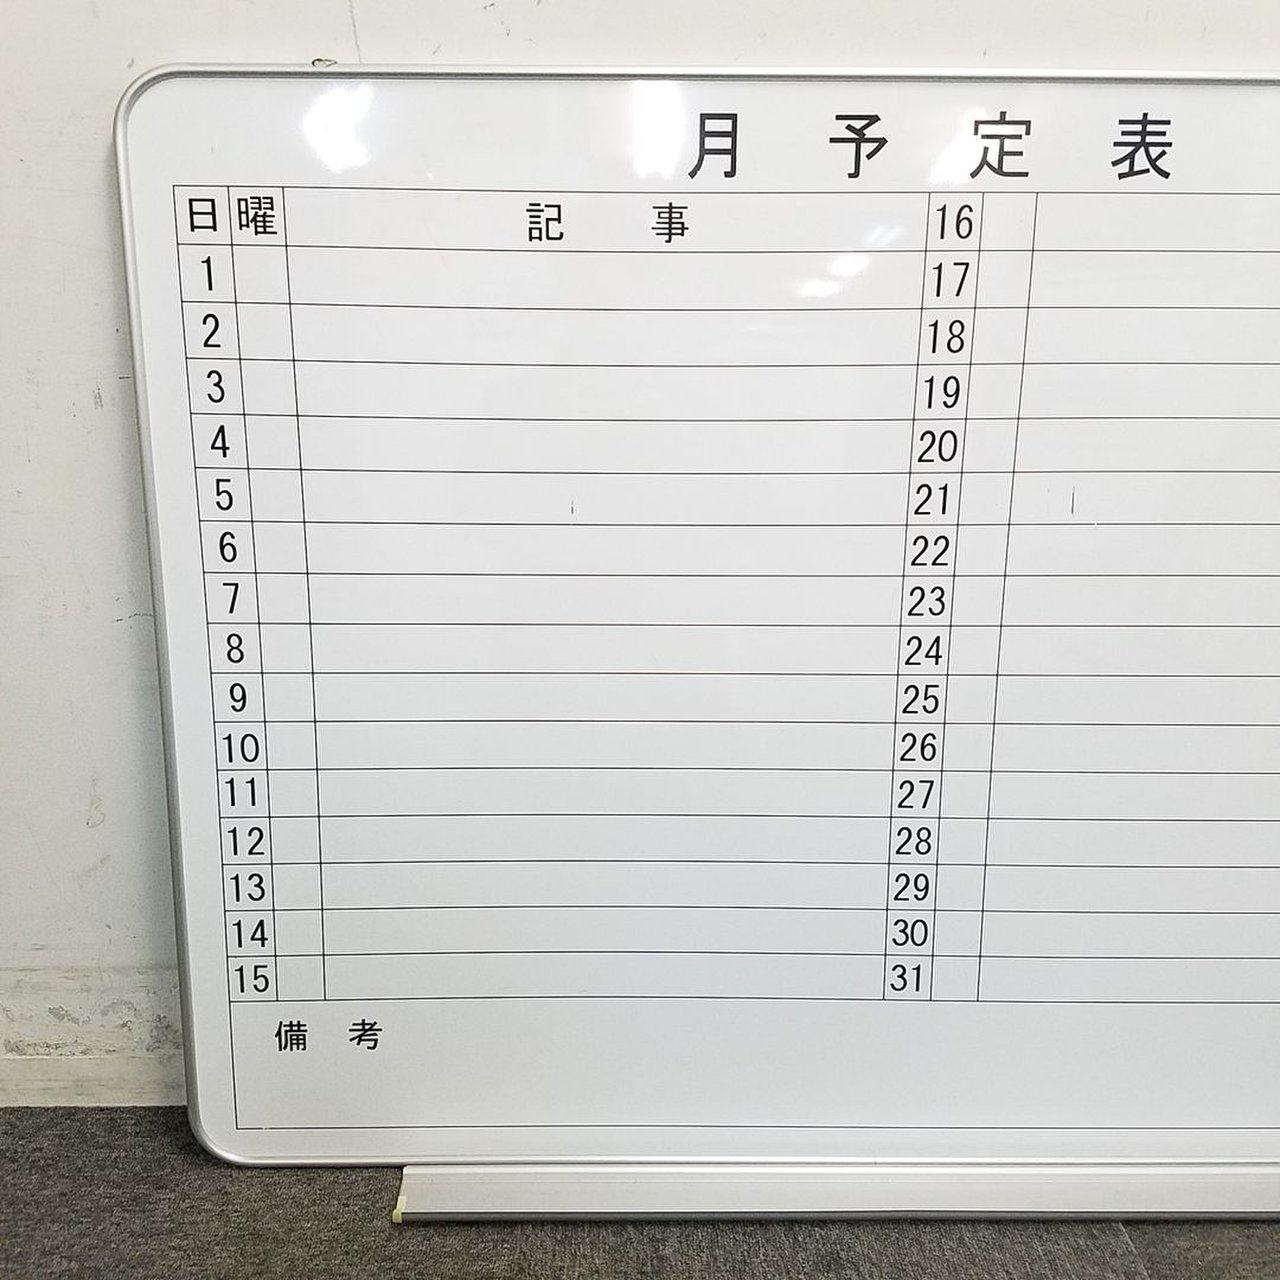 月 予 定 表
日 曜 記 事 16
1 17
2 18
3 19
4 20
5 21
6 22
7 23
8 24
9 25
10 26
11 27
12 28
13 29
14 30
15 31
備 考